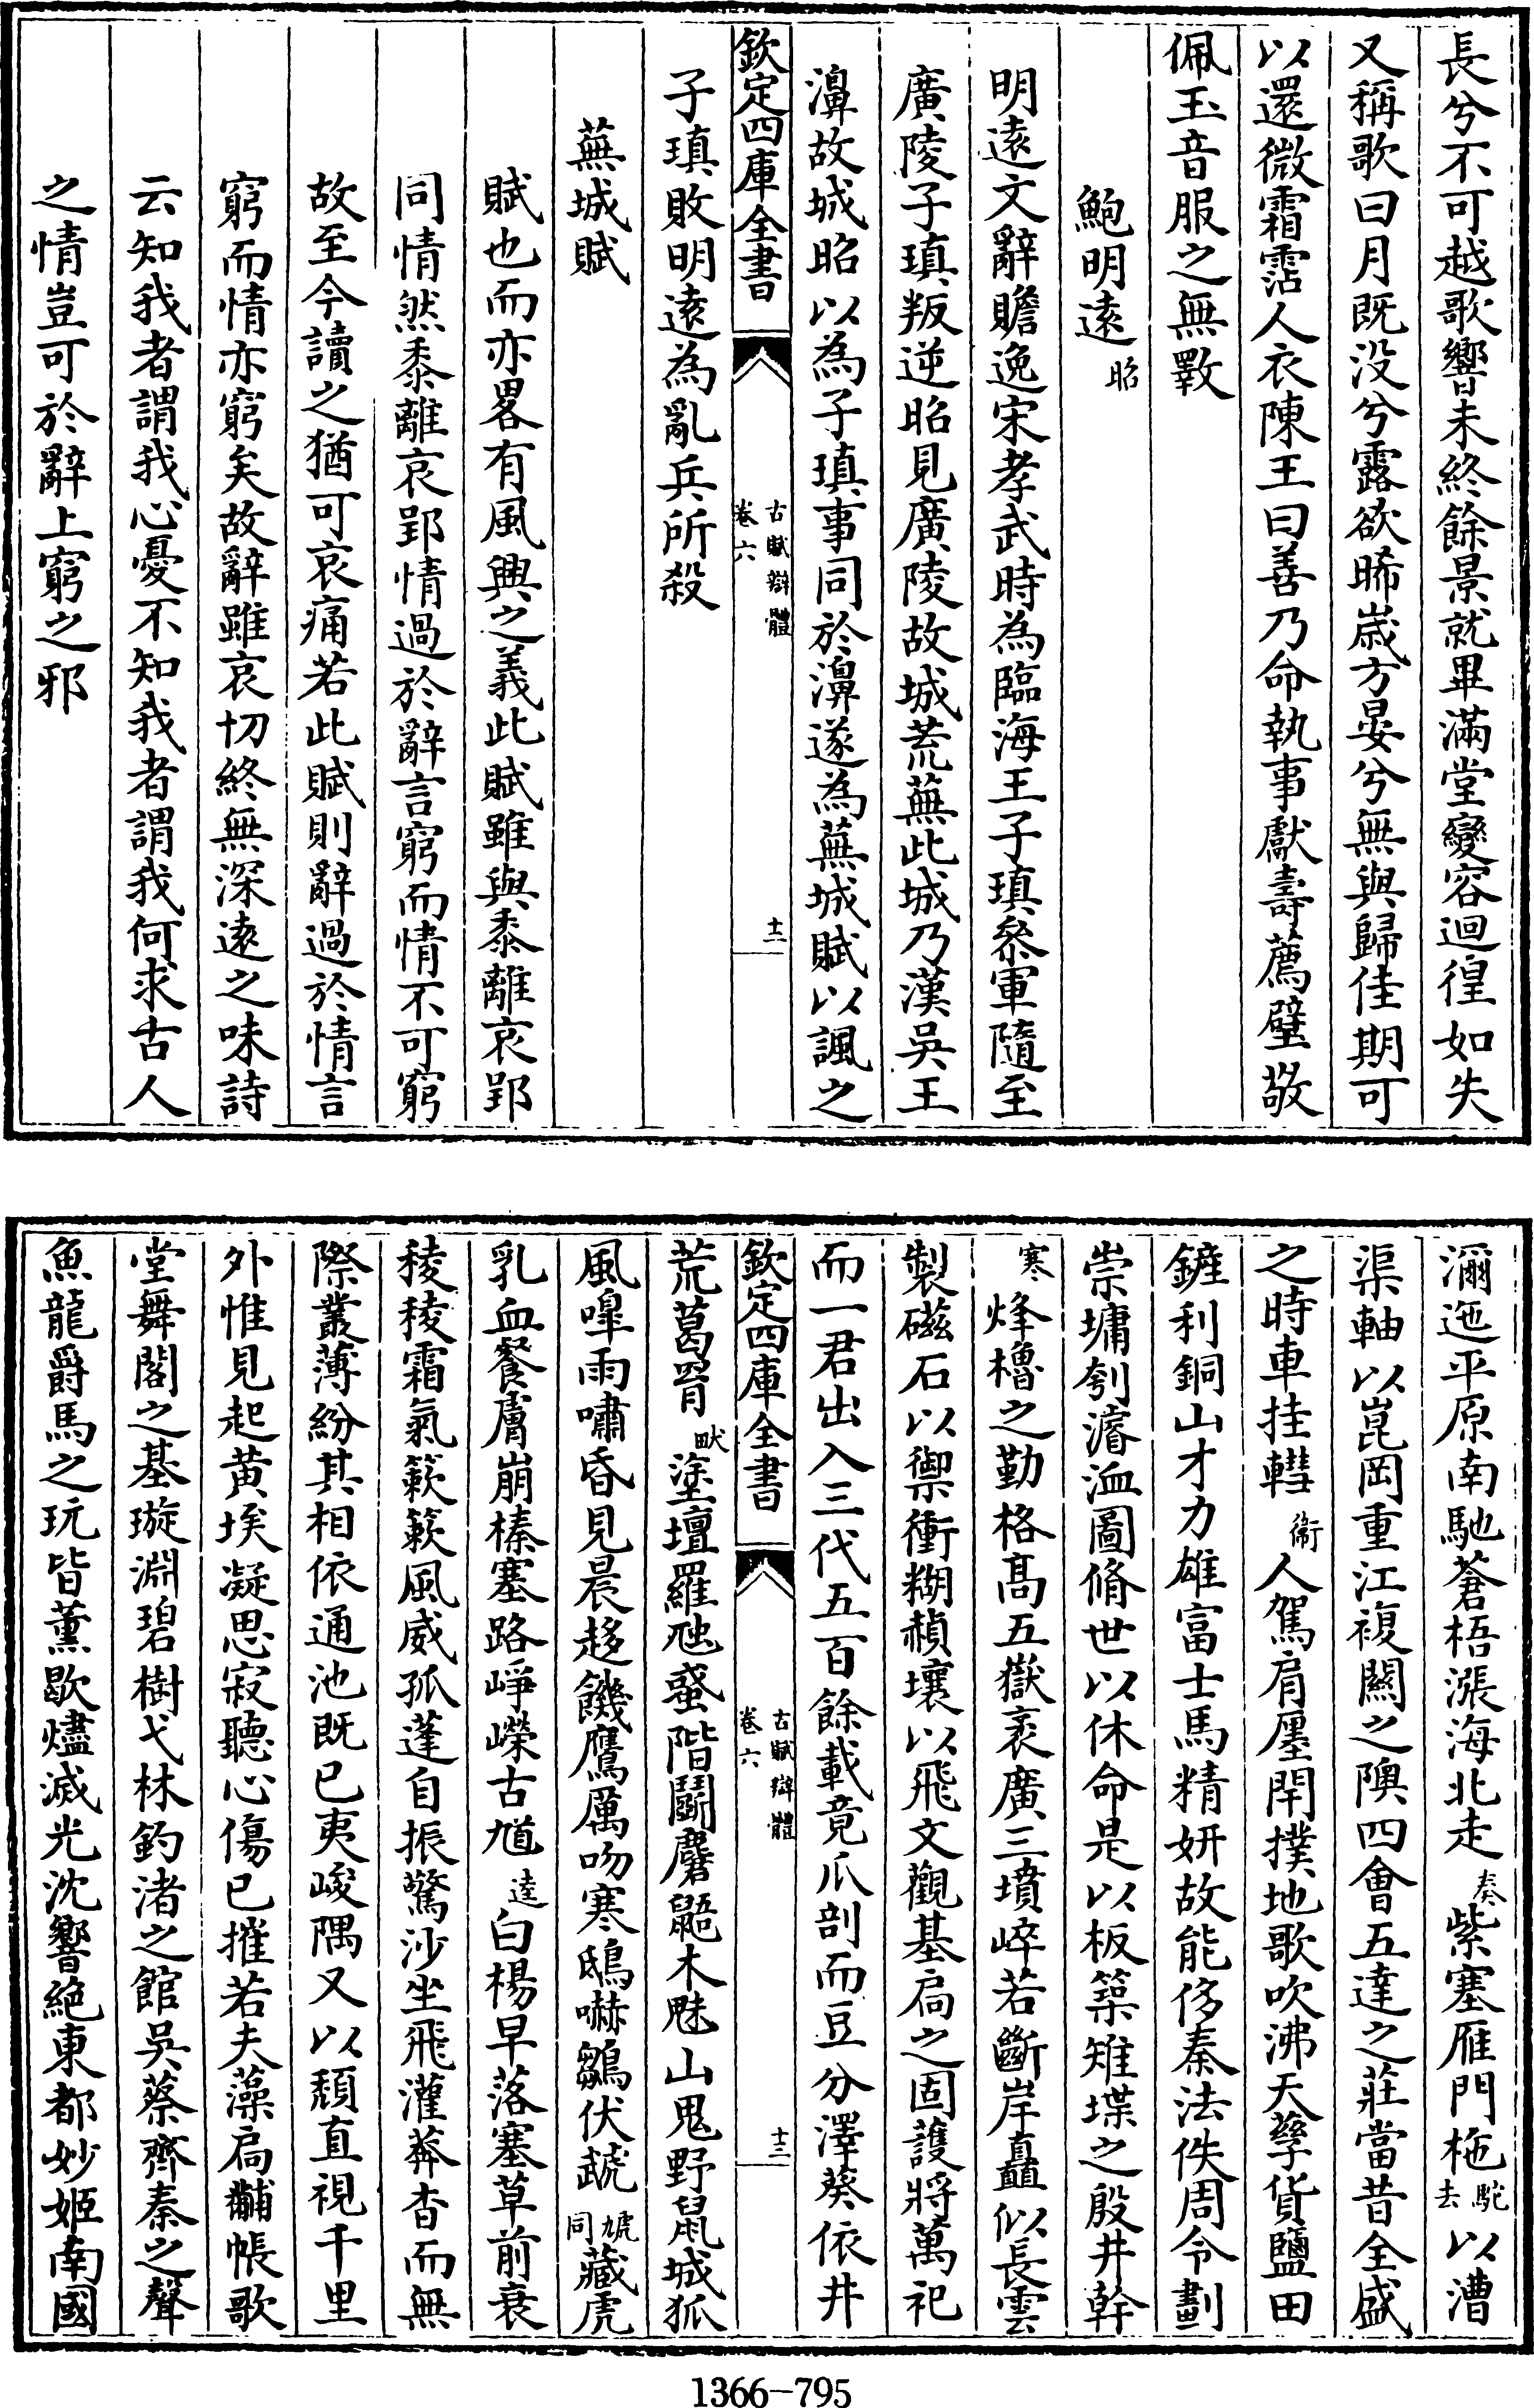 長兮不可越歌響未終餘景就畢滿堂變容迴徨如失
又稱歌曰月既没兮露欲晞歲方晏兮無與歸佳期可
以還微霜霑人衣陳王曰善乃命執事獻壽薦璧敬
佩玉音服之無斁
鮑明遠昭
明遠文辭贍逸宋孝武時為臨海王子瑱叅軍隨至
廣陵子瑱叛逆昭見廣陵故城荒蕪此城乃漢吳王
濞故城昭以為子瑱事同於濞遂為蕪城賦以諷之
欽定四庫全書
古賦辯體
卷六
十二
子瑱敗明遠為亂兵所殺
蕪城賦
賦也而亦畧有風興之義此賦雖與黍離哀郢
同情然黍離哀郢情過於辭言窮而情不可窮
故至今讀之猶可哀痛若此賦則辭過於情言
窮而情亦窮矣故辭雖哀切終無深遠之味詩
云知我者謂我心憂不知我者謂我何求古人
之情豈可於辭上窮之邪
濔迤平原南馳蒼梧漲海北走奏紫塞雁門柂駝去以漕
渠軸以崑岡重江複關之隩四會五達之莊當昔全盛
之時車挂轊衞人駕肩廛閈撲地歌吹沸天孳貨鹽田
鏟利銅山才力雄富士馬精妍故能侈秦法佚周令劃
崇墉刳濬洫圖脩世以休命是以板築雉堞之殷井幹
寒烽櫓之勤格高五嶽袤廣三墳崪若斷岸矗似長雲
製磁石以禦衝糊赬壤以飛文觀基扃之固護將萬祀
而一君出入三代五百餘載竟爪剖而豆分澤葵依井
欽定四庫全書
古賦辯體
卷六
十三
荒葛罥畎塗壇羅虺蜮階鬬麏鼯木魅山鬼野鼠城狐
風嘷雨嘯昏見晨趍饑鷹厲吻寒鴟嚇鶵伏虣虓同藏虎
乳血餐膚崩榛塞路崢嶸古馗逵白楊早落塞草前衰
稜稜霜氣簌簌風威孤蓬自振驚沙坐飛灌莽杳而無
際叢薄紛其相依通池既已夷峻隅又以頹直視千里
外惟見起黄埃凝思寂聽心傷已摧若夫藻扃黼帳歌
堂舞閣之基璇淵碧樹弋林釣渚之館吳蔡齊秦之聲
魚龍爵馬之玩皆薰歇燼滅光沈響絶東都妙姬南國
1366-795